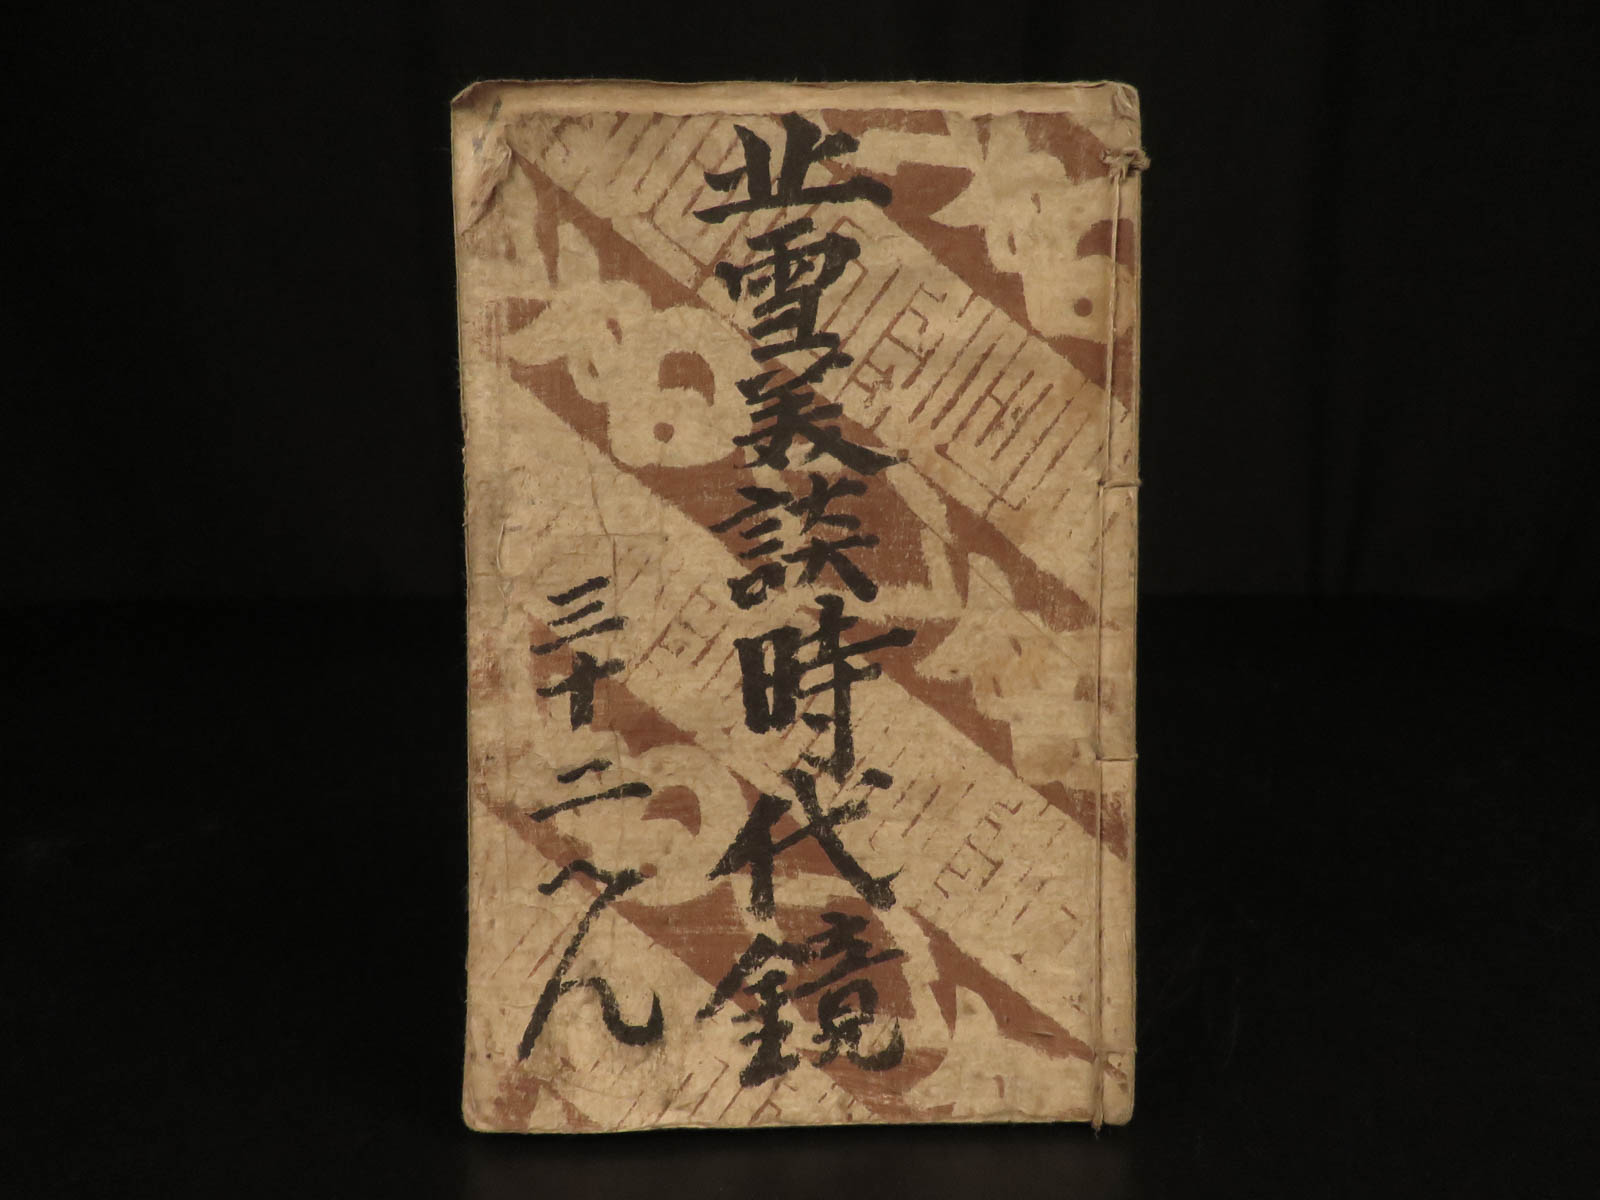 北雪美談時代鏡
三十二へん